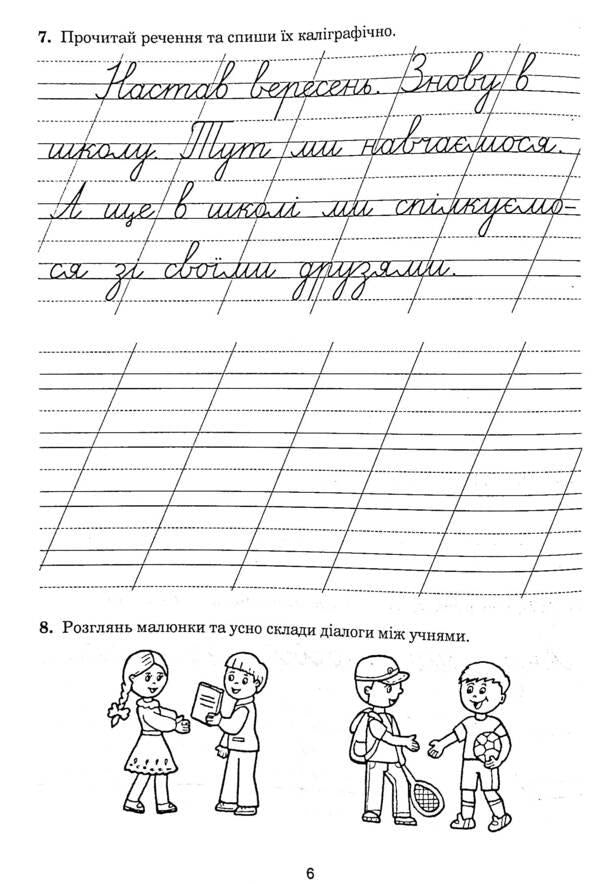 7. Прочитай речення та спиши їх каліграфічно.
Настав вересень. Знову в
школу. Тут ми навчаємося.
А ще в школі ми спілкуємо-
ся зі своїми друзями.
8. Розглянь малюнки та усно склади діалоги між учнями.
6